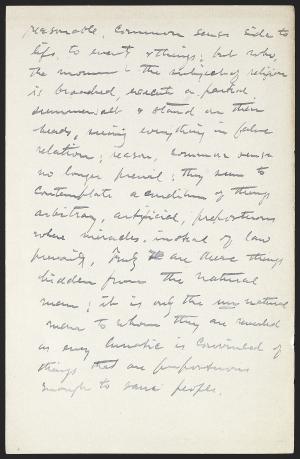 reasonable, common sense side to
life, to events & things; but when
the moment the subject of religion
is broached, execute a partial
summersault & stand on their
heads, seeing everything in false
relation; reason, common sense
no longer prevail; they seem to
contemplate a condition of things
arbitrary, artificial, preposterous
where miracles, instead of law
prevails, Truly are these things
hidden from the natural
man; it is only the unnatural
man to whom they are revealed
as every lunatic is convinced of
things that are preposterous
enough to sane people.